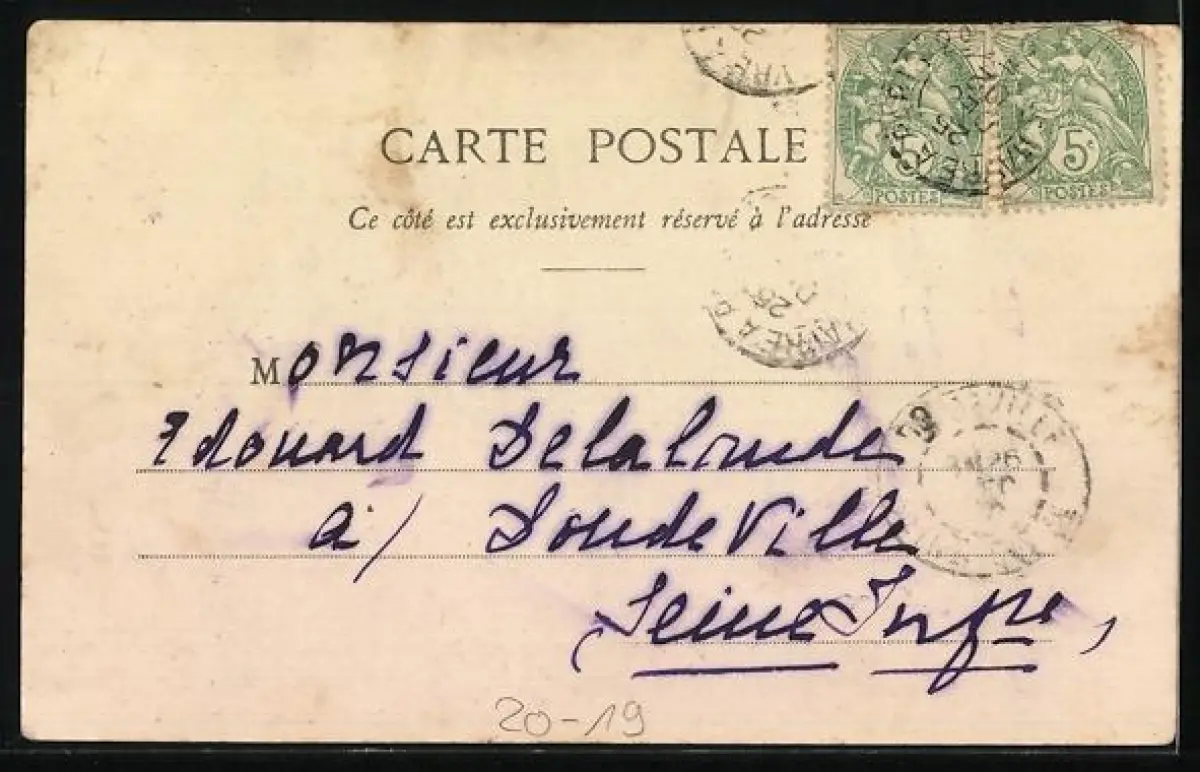 CARTE POSTALE
5c
POSTES
POSTES
Ce côté est exclusivement réservé à l'adresse
Monsieur
Edouard Delalande
à Doudeville
(Seine Infre)
20-19